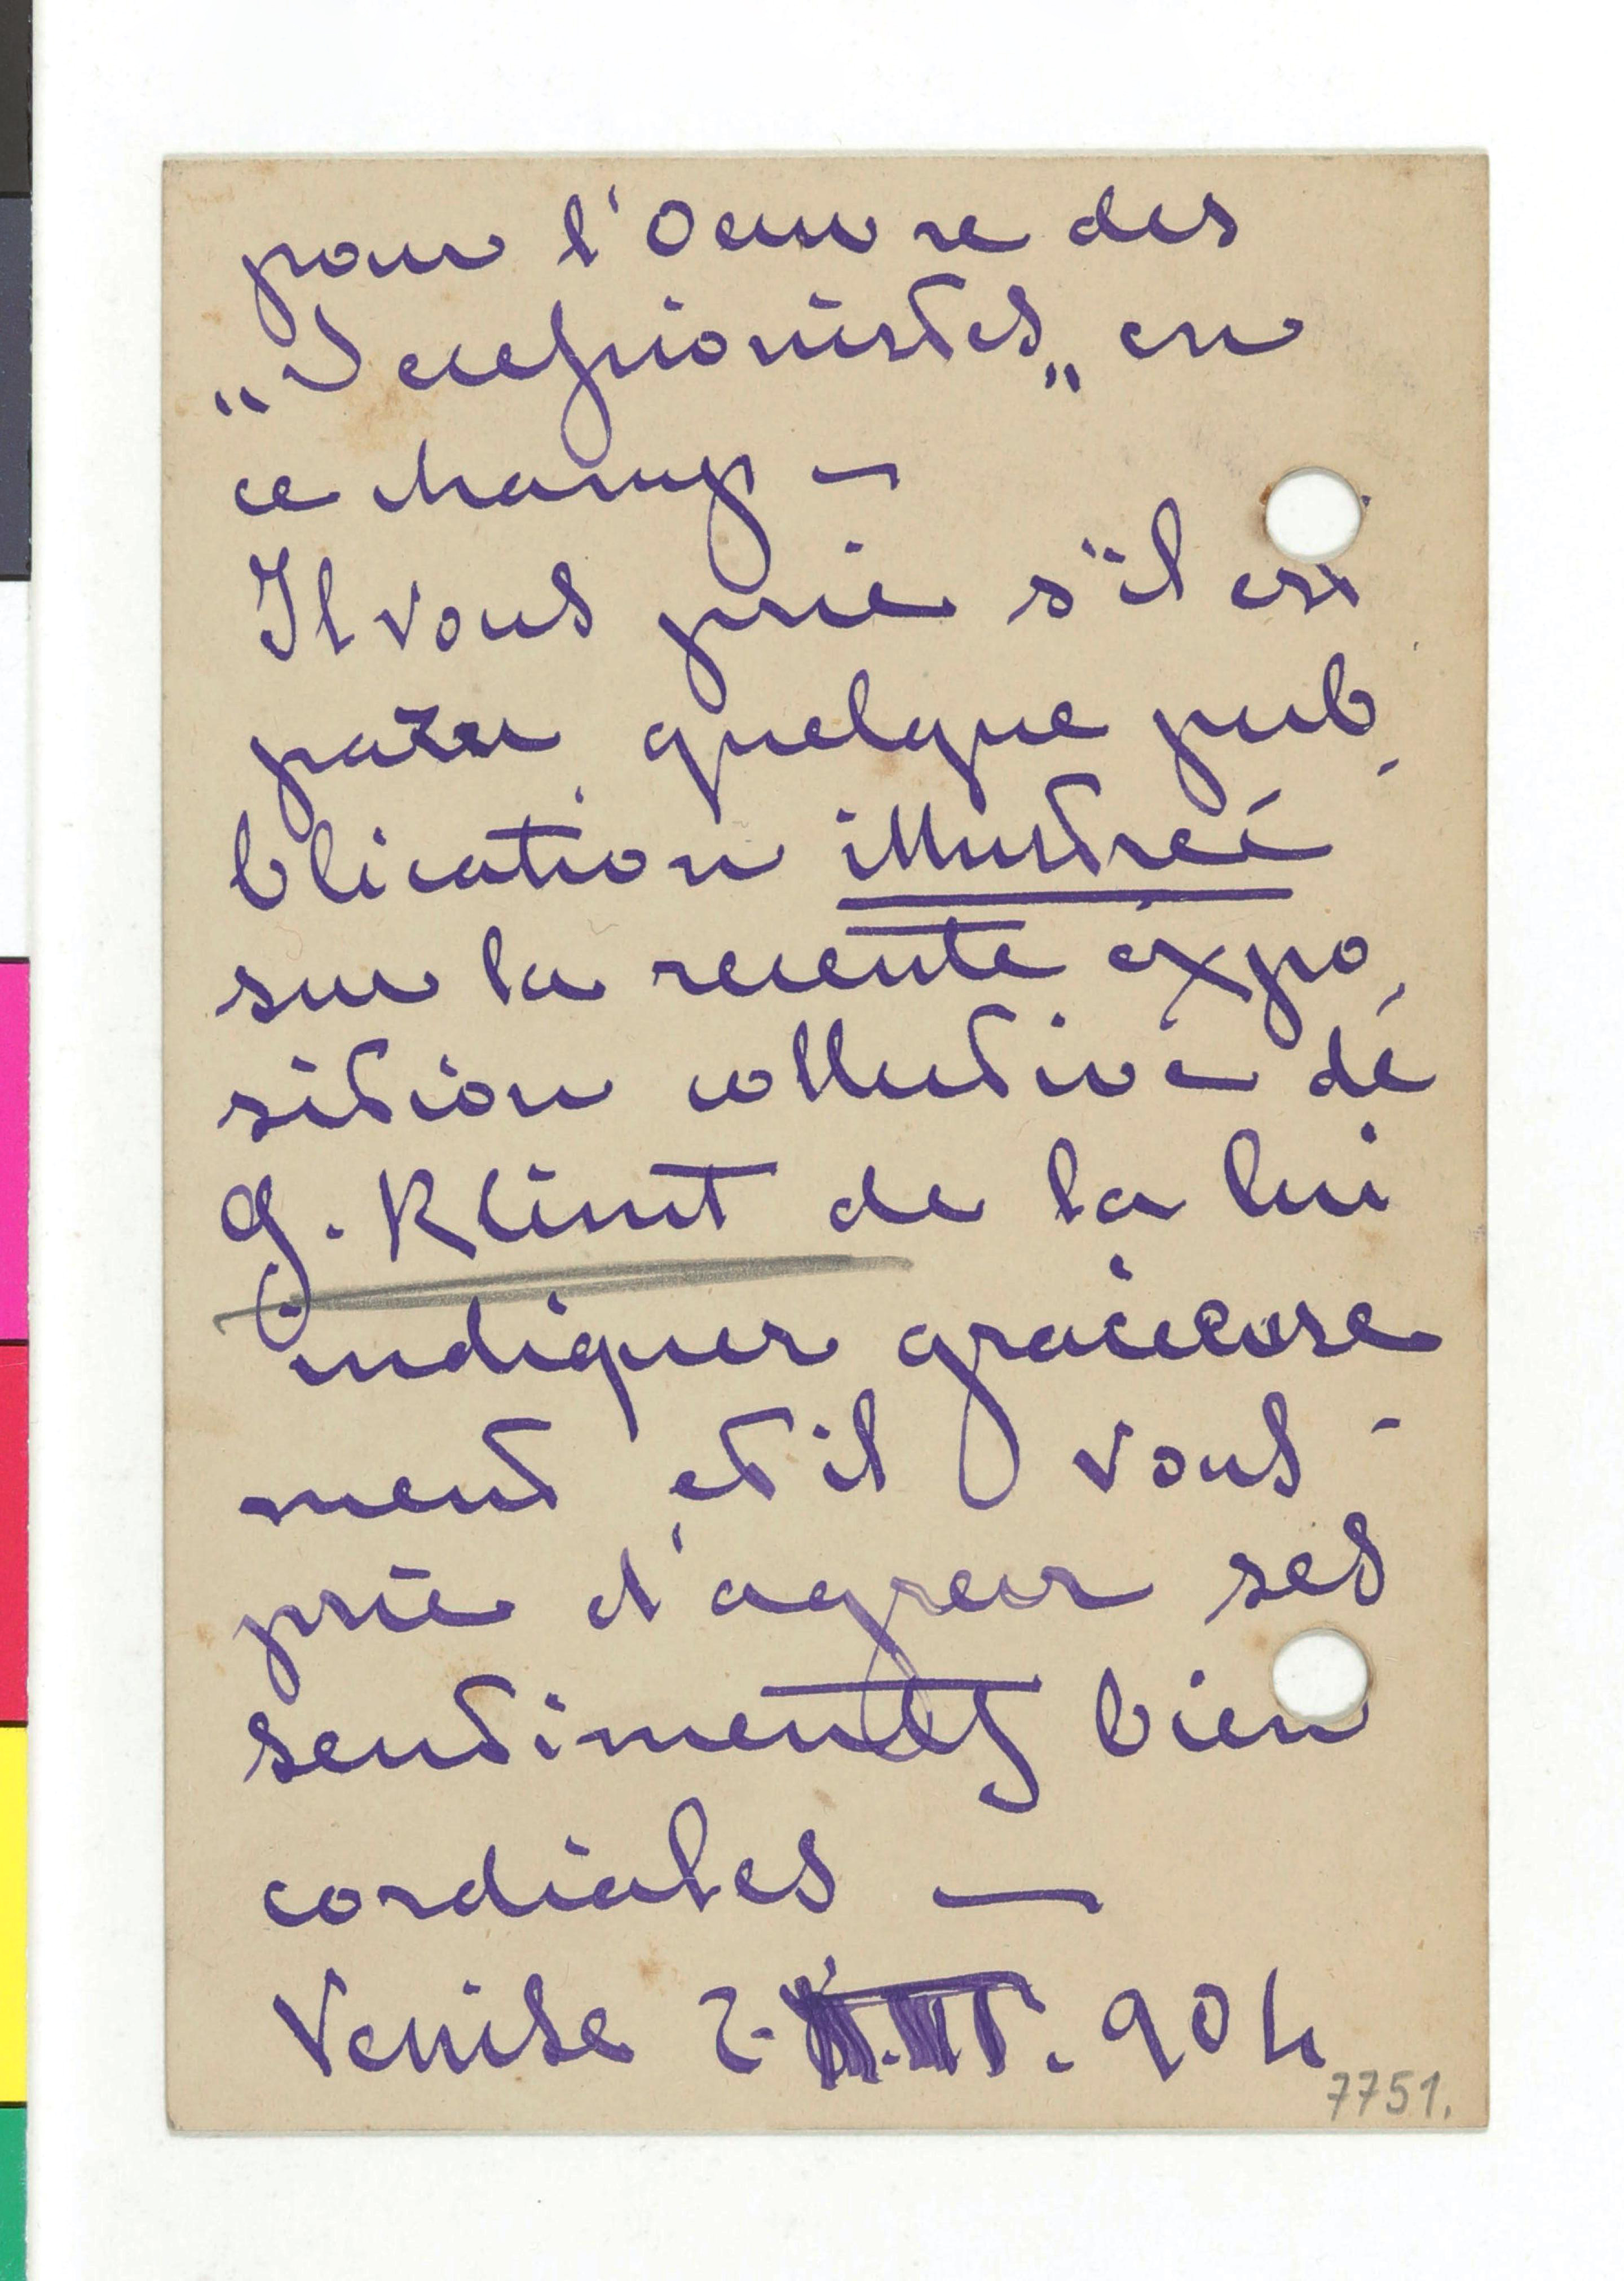 pour l'Oeuvre des
„Secessionistes„ en
ce champ —
Il vous prie s'il est
paru quelque pub-
blication illustreé
sur la recente expo-
sition collective de
G. Klimt de la lui
indiquer gracieuse-
ment et il vous
prie d'agreer ses
sentiments bien
cordiales —
Venise 2. .904
7751.